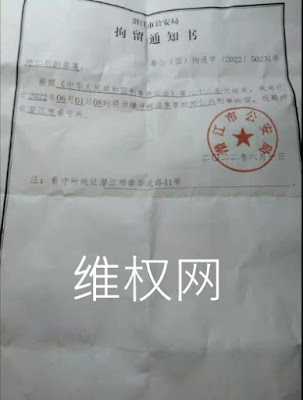 潜江市公安局
拘留通知书
的家属：
公（国）拘通字〔2022〕50231号
根据《中华人民共和国刑事诉讼法》第
于2022年06月01日08时将涉嫌寻衅滋事罪的 刑事拘留，现羁押
在潜江市看守所。
潜江市公安局
二〇二二年六月一日
注：看守所地址潜江市 路11号
维权网